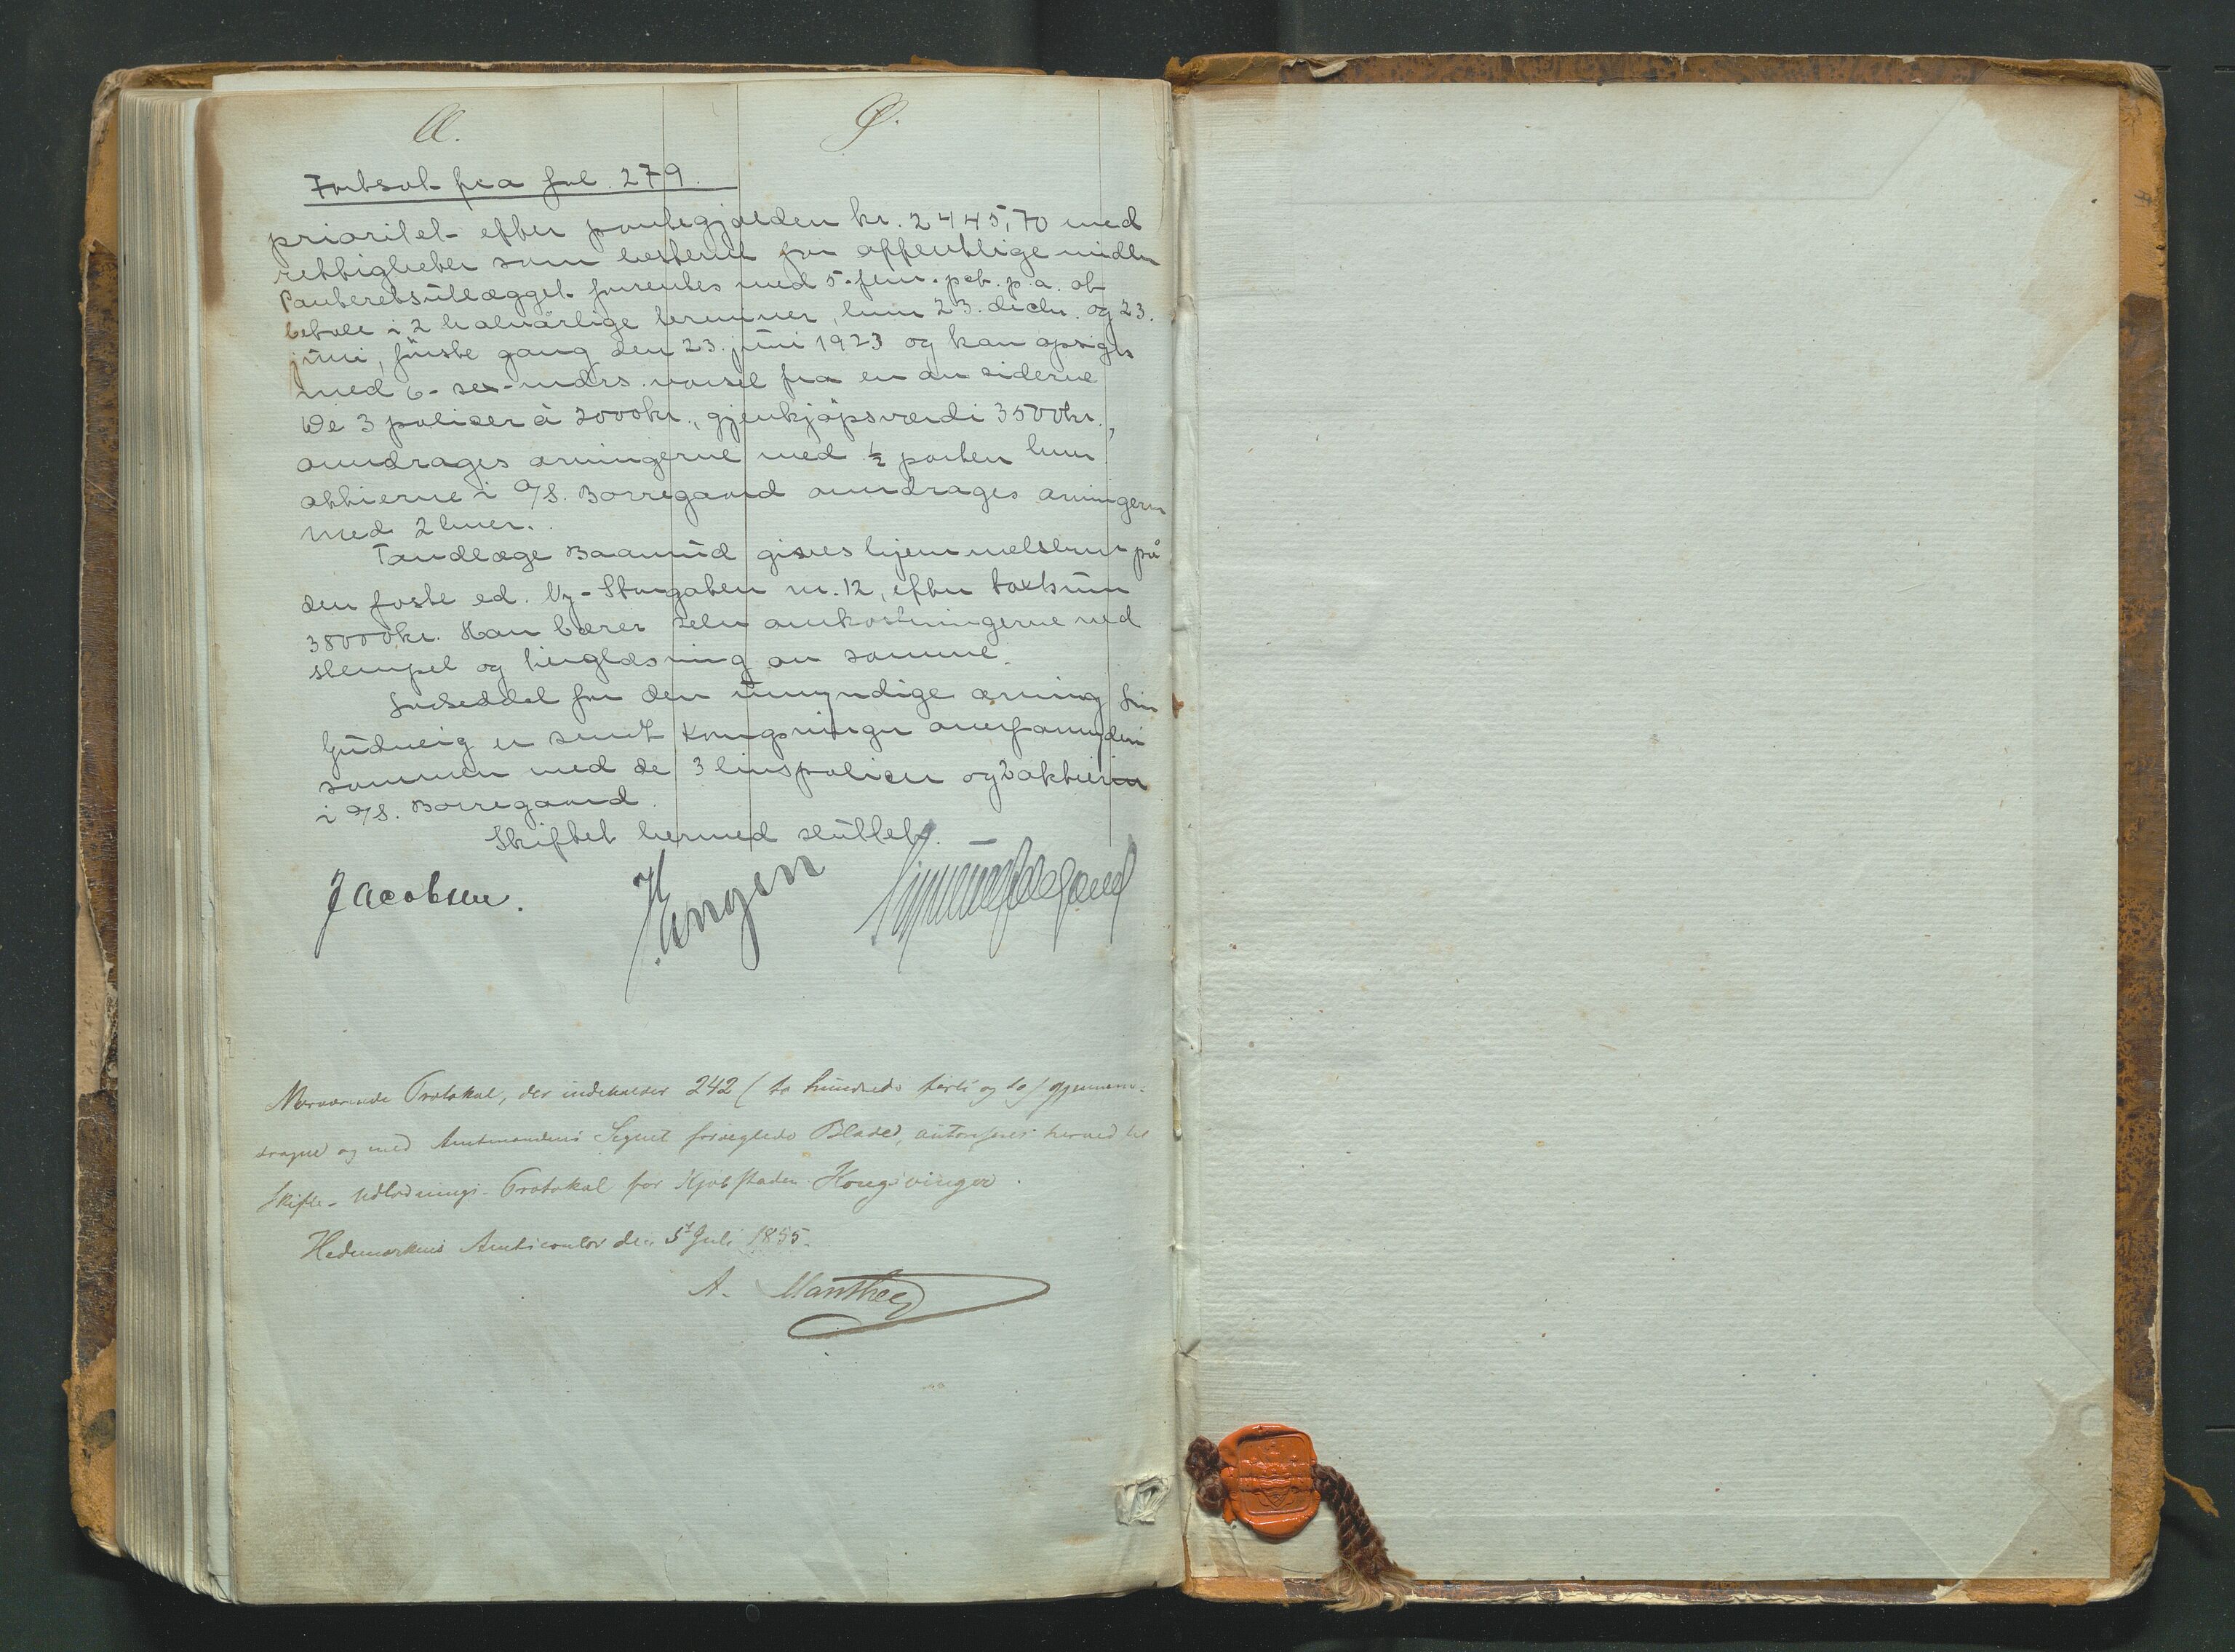 Æ. Ø.
Fortsat fra fol. 279.
prioritet efter pantegjælden kr. 2445,70 med
rettigheter som bestemt for offentlige midler
Panteretsutlægget forrentes med 5 - fem - pct. p.a. at
betale i 2 halvårlige terminer, hver 23. decbr. og 23.
juni, første gang den 23. juni 1923 og kan opsiges
med 6 - sex - mdrs. varsel fra en av siderne
De 3 poliser à 2000 kr., gjenkjøpsværdi 3500 kr.,
overdrages arvingerne med ½ parten hver
aktierne i A/S. Borregaard overdrages arvingerne
med 2 hver.
Tandlæge Baanrud gives hjemmelsbrev på
den faste ed. Ny-Storgaten nr. 12, efter takstsum
38000 kr. Han bærer selv omkostningerne ved
stempel og tinglæsning av samme.
Lodseddel for den umyndige arving
Gudveig er sendt Kongsvinger overformynderi
sammen med de 3 livspolicer og 2 aktier
i A/S. Borregaard.
Skiftet hermed sluttet.
Jacobsen.
Nærværende Protokol, der indeholder 242 (to hundrede førti og to) gjennem-
dragne og med Amtmandens Segnet forseglede Blade, autoriseres herved til
Skifte-Udlodnings-Protokol for Kjøbstaden Kongsvinger.
Hedemarkens Amtscontor den 5t Juli 1855.
A. Manthey